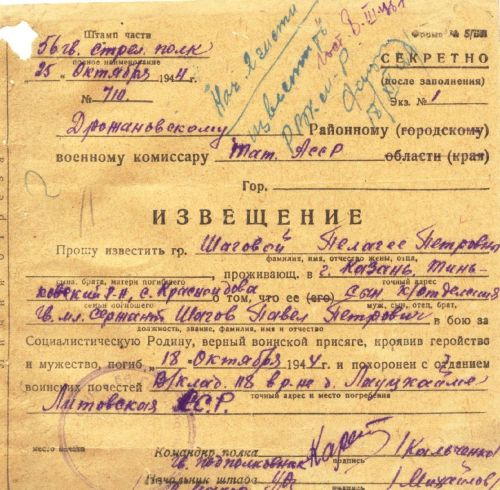 Штамп части
56 гв. стрел. полк
полное наименование
25 „ Октября 1944 г.
№ 710.
Форма № 5/БП
СЕКРЕТНО
(после заполнения)
Экз. № 1
Дрожановскому Районному (городскому)
военному комиссару Тат. АССР области (края)
Гор.
ИЗВЕЩЕНИЕ
Прошу известить гр. Шаговой Пелагее Петровн
фамилия, имя, отчество жены, отца,
, проживающ. в г. Казань,
сына, брата, матери погибшего точный адрес
р-н. с. о том, что ее (его) сын к/отделения
семьи погибшего муж, сын, отец, брат,
Гв. мл. сержант Шагов Павел Петрович в бою за
должность, звание, фамилия, имя и отчество
Социалистическую Родину, верный воинской присяге, кроявив геройство
и мужество, погиб „ 18 „ Октября 1944 г. и похоронен с отданием
воинских почестей В/клад. 118 в р-не д.
точный адрес и место погребения
Литовская ССР.
место печати
Командир полка
гв. подполковник /Кальченко
подпись
Начальник штаба
/Михайлов